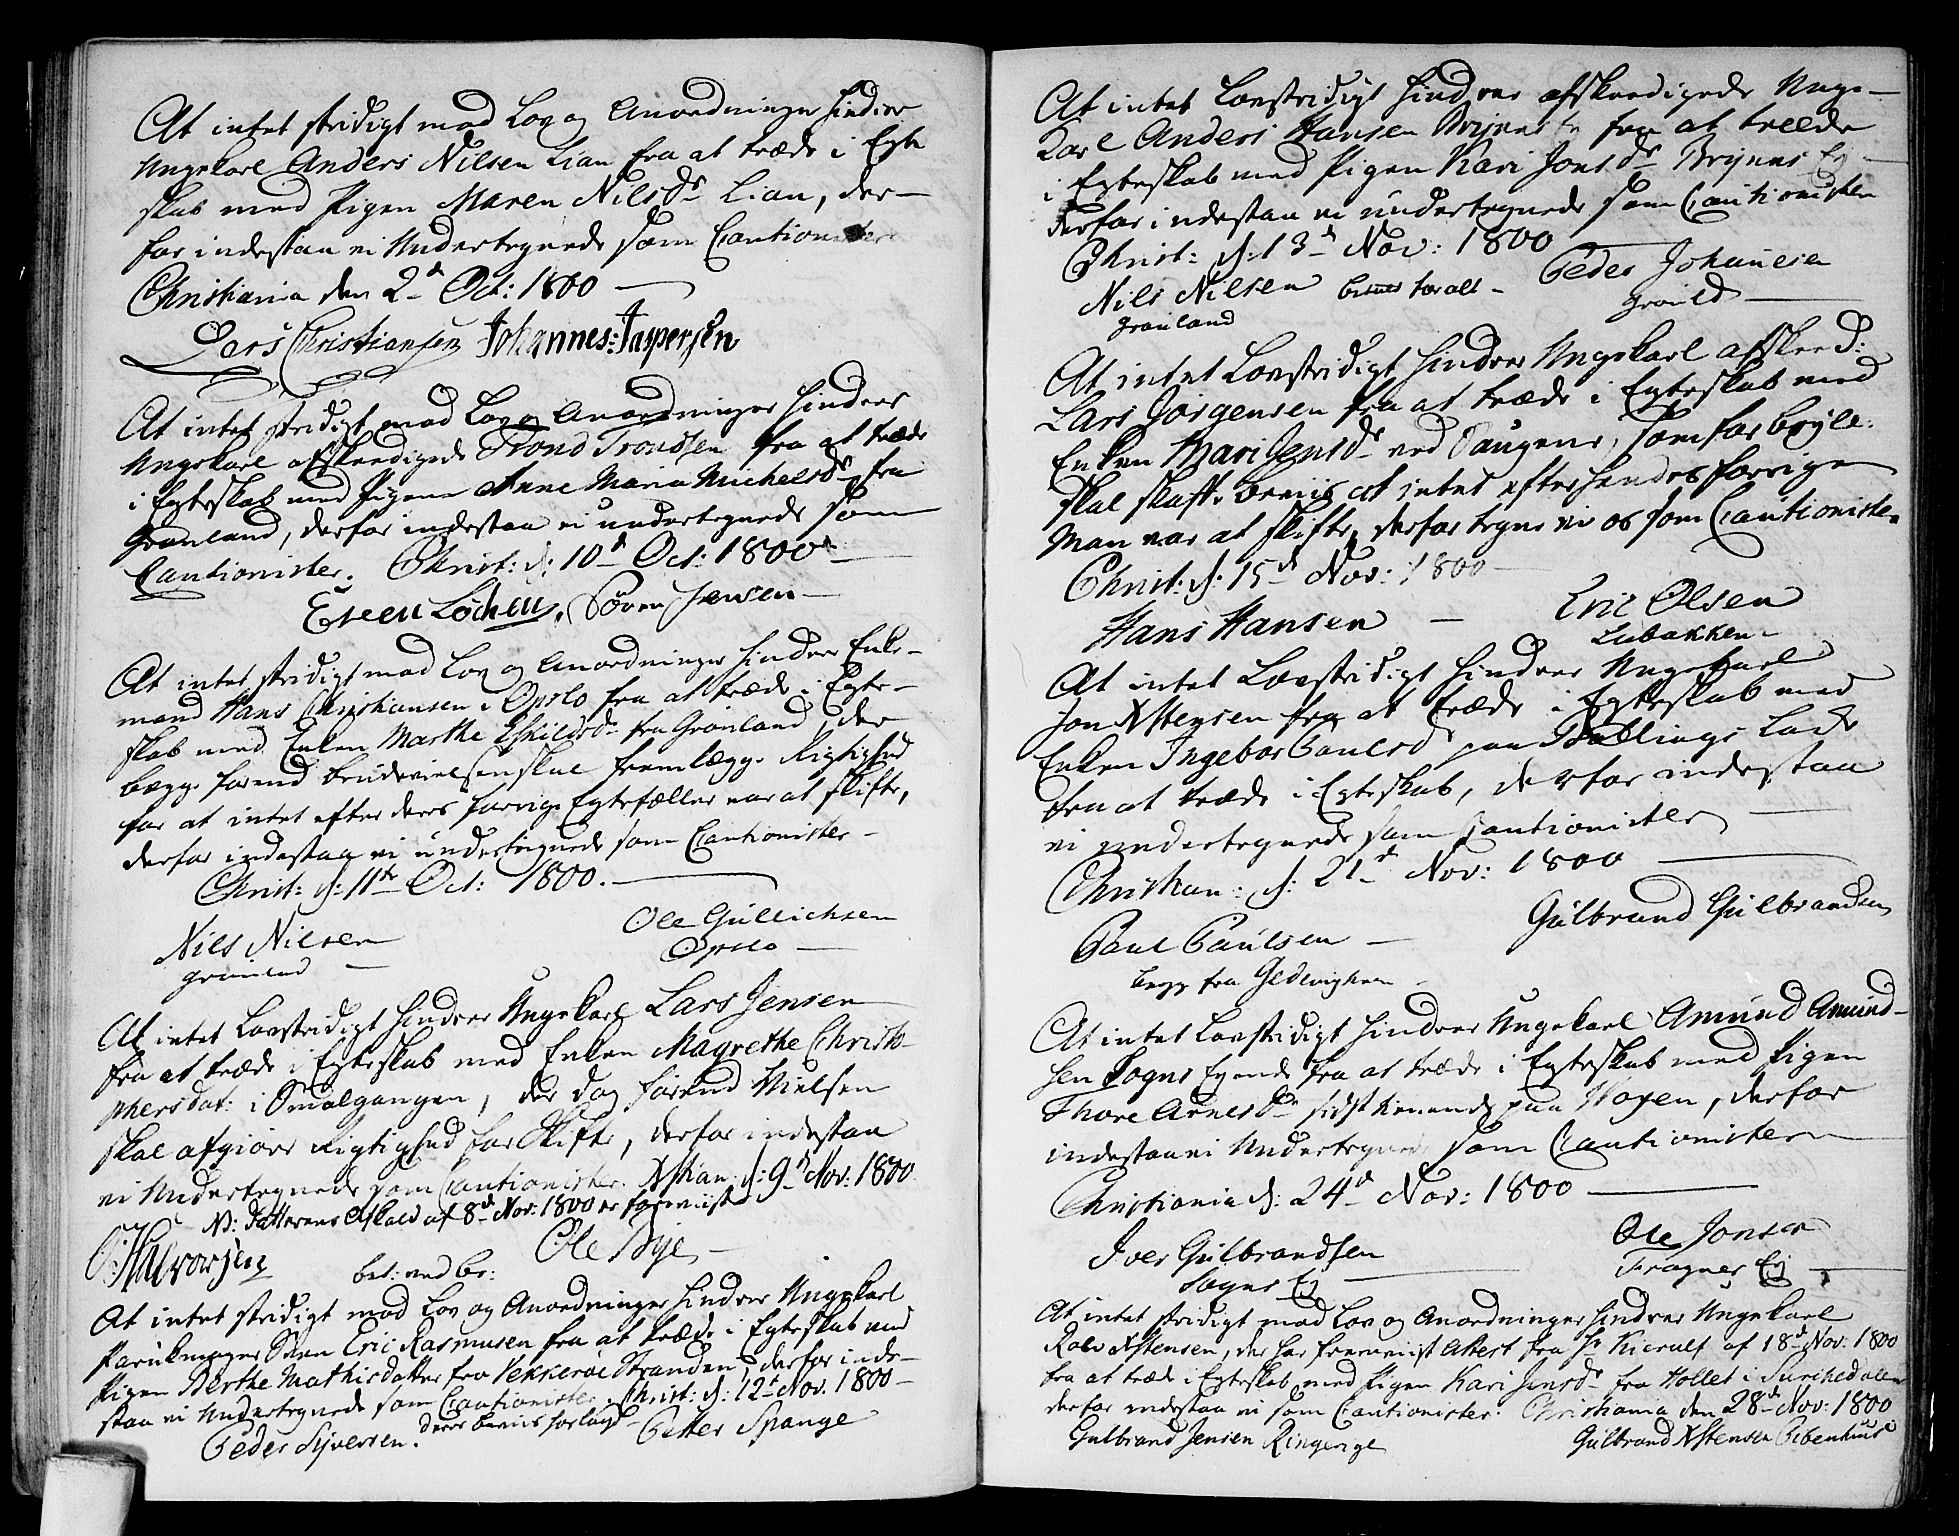 At intet stridigt mod Lov og Anordninger hindrer
Ungekarl Anders Nilsen Lian fra at træde i Egte
skab med Pigen Maren Nilsdr Lian, der-
for indestaa vi Undertegnede som Cautionister
Christiania den 2d Oct: 1800
Lars Christiansen Johannes: Jaspersen
At intet stridigt mod Lov og Anordninger hindrer
Ungekarl afskeedigede Trond Trondsen fra at træde
i Egteskab med Pigen Anne Maria Michelsdr fra
Grønland, derfor indestaa vi undertegnede som
Cautionister. Christ: d: 10d Oct: 1800
Even Løchen. Søren Jensen
At intet stridigt mod Lov og Anordninger hindrer Enke-
mand Hans Christiansen i Opslo fra at træde i Egte-
skab med Enken Marthe Eskildsdr fra Grønland, der
begge forend brudevielsen skal fremlægge Rigtighed
for at intet efter deres forrige Egtefæller var at skifte,
derfor indestaa vi undertegnede som Cautionister
Christ: d: 11te Oct: 1800.
Nils Nilsen Ole Gullichsen
Grønland Opslo
At intet Lovstridigt hindrer Ungekarl Lars Jensen
fra at træde i Egteskab med Enken Magrethe Christo-
phersdat: i Smalgangen, der dog forend Vielsen
skal afgiøre Rigtighed for Skifte, derfor indestaa
vi Undertegnede som Cautionister. Xstian d: 9d Nov: 1800
NB: Fatterens Afkald af 8d Nov: 1800 er foreviist
O: Halvorsen Ole Bye
bet: ved Br:
At intet stridigt mod Lov og Anordninger hindrer Ungekarl
Parukmager Svend Eric Rasmusen fra at træde i Egteskab med
Pigen Berthe Mathisdatter fra Vekkerøe Stranden, derfor inde-
staa vi Undertegnede som Cautionister. Christ: d: 12te Nov. 1800
Peder Syversen. deres beviis forlagt Petter Spange
At intet Lovstridigt hindrer afskeedigede Unge-
Karl Anders Hansen Bryns fra at træede
i Egteskab med Pigen Kari Jonsdr Bryns Ej
derfor indestaa vi undertegnede som Cautionister
Christ: d: 13d Nov: 1800
Nils Nilsen Peder Johanesen
Grønland Grønld
At intet Lovstridigt hindrer Ungekarl afskeed:
Lars Jørgensen fra at træde i Egteskab med
Enken Mari Jensdr ved Vaugene, som for brylle.
skal skaffe beviis at intet efter hendes forrige
Man var at skifte, derfor tegne vi os som Cautionister
Christ: d: 15d Nov: 1800
Hans Hansen Eric Olsen
Lubakken
At intet Lovstridigt hindrer Ungekarl
Jon Xstensen fra at træde i Egteskab med
Enken Ingebor Paulsd paa Ballings Løkke
fra at træde i Egteskab, derfor indestaa
vi undertegnede som Cautionister
Christian: d: 21d Nov: 1800
Paul Paulsen Gulbrand Gulbrandsen
begge fra Gledwighen
At intet Lovstridigt hindrer Ungekarl Amund Amund-
sen Sogns Egende fra at træde i Egteskab med Pigen
Thore Arnesdr sidst tienende paa Woxen, derfor
indestaa vi Undertegnede som Cautionistern
Christiania d: 24d Nov: 1800
Iver Gulbrandsen Ole Jonsen
Sogns Ej Frogner Ej
At intet stridigt mod Lov og Anordninger hindrer Ungekarl
Rolv Xstensen, der har fremviist Attest fra Hr Kierulf af 18d Nov: 1800
fra at træde i Egteskab med Pigen Kari Jensdr fra Hollet i Surkedalen
derfor indestaa vi som Cautionister. Christiania den 28d Nov: 1800
Gulbrand Jensen Ringerige Gulbrand Xstensen Pibenhuus